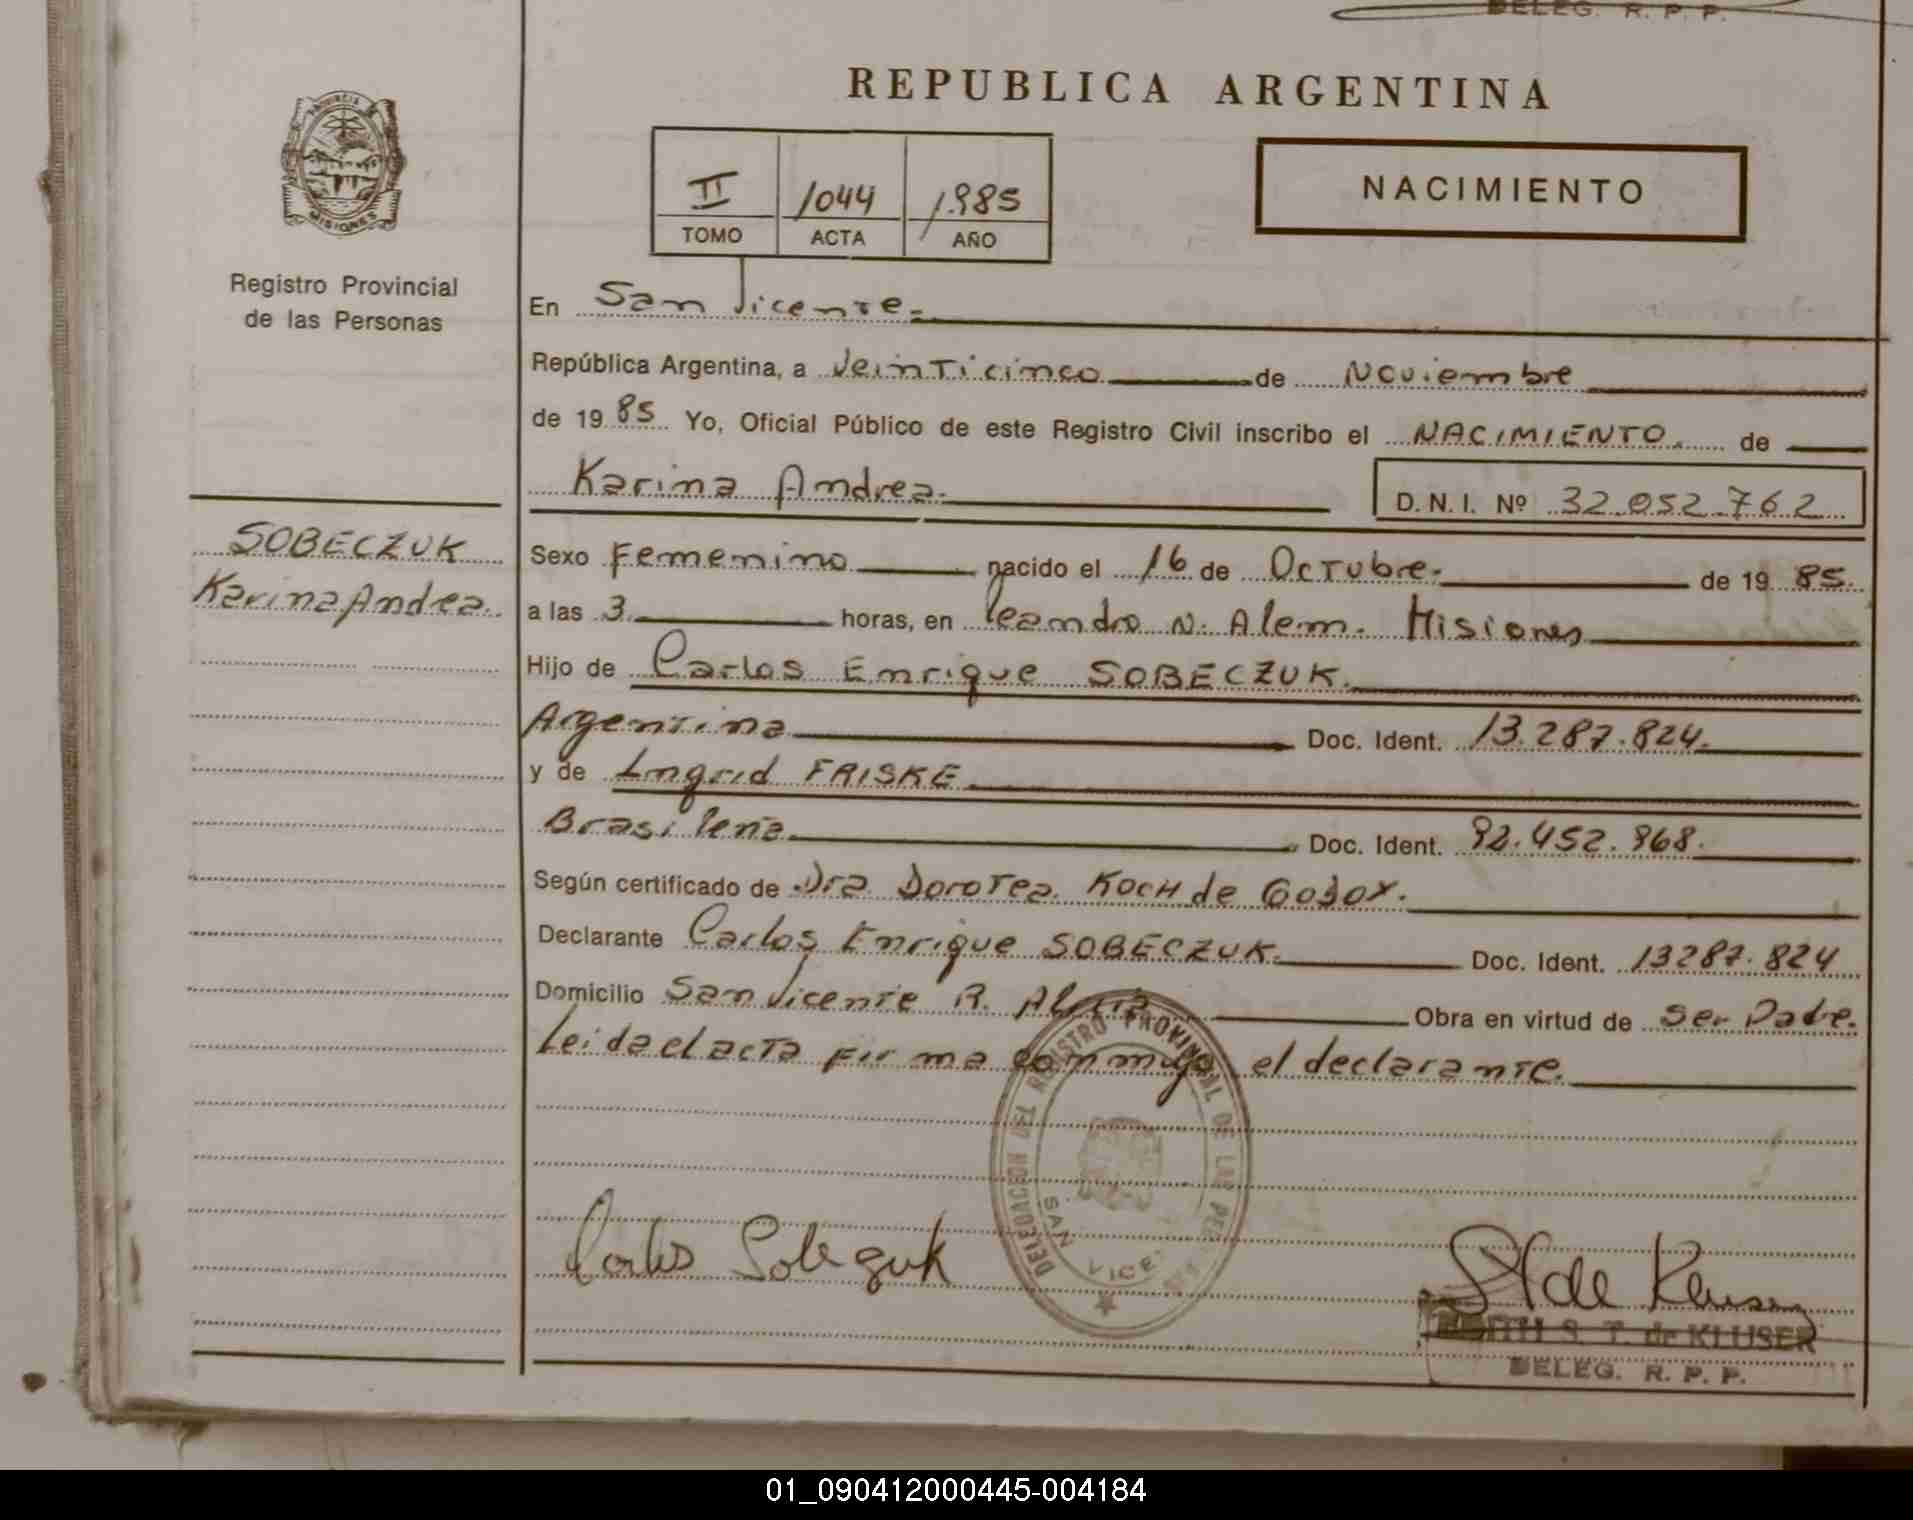 DELEG. R. P. P.
REPUBLICA ARGENTINA
PROVINCIA DE
MISIONES
II 1044 1985
TOMO ACTA AÑO
NACIMIENTO
Registro Provincial
de las Personas
En San Vicente.
República Argentina, a Veinticinco de Noviembre
de 1985 Yo, Oficial Público de este Registro Civil inscribo el NACIMIENTO. de
Karina Andrea.
D. N. I. Nº 32.052.762
SOBECZUK
Karina Andrea.
Sexo Femenino nacido el 16 de Octubre. de 1985.
a las 3 horas, en Leandro N. Alem. Misiones
Hijo de Carlos Enrique SOBECZUK.
Argentina Doc. Ident. 13.287.824.
y de Ingrid FRISKE
Brasileña Doc. Ident. 92.452.968.
Según certificado de Dra. Dorotea. KOCH de Godoy.
Declarante Carlos Enrique SOBECZUK. Doc. Ident. 13287.824
Domicilio San Vicente R. Obra en virtud de ser Padre.
Leida el acta firma conmigo el declarante.
DELEGACION DEL REGISTRO PROVINCIAL DE LAS
SAN VICE
Carlos Sobeczuk
de Kluser
EDITH S. T. de KLUSER
DELEG. R. P. P.
01_090412000445-004184